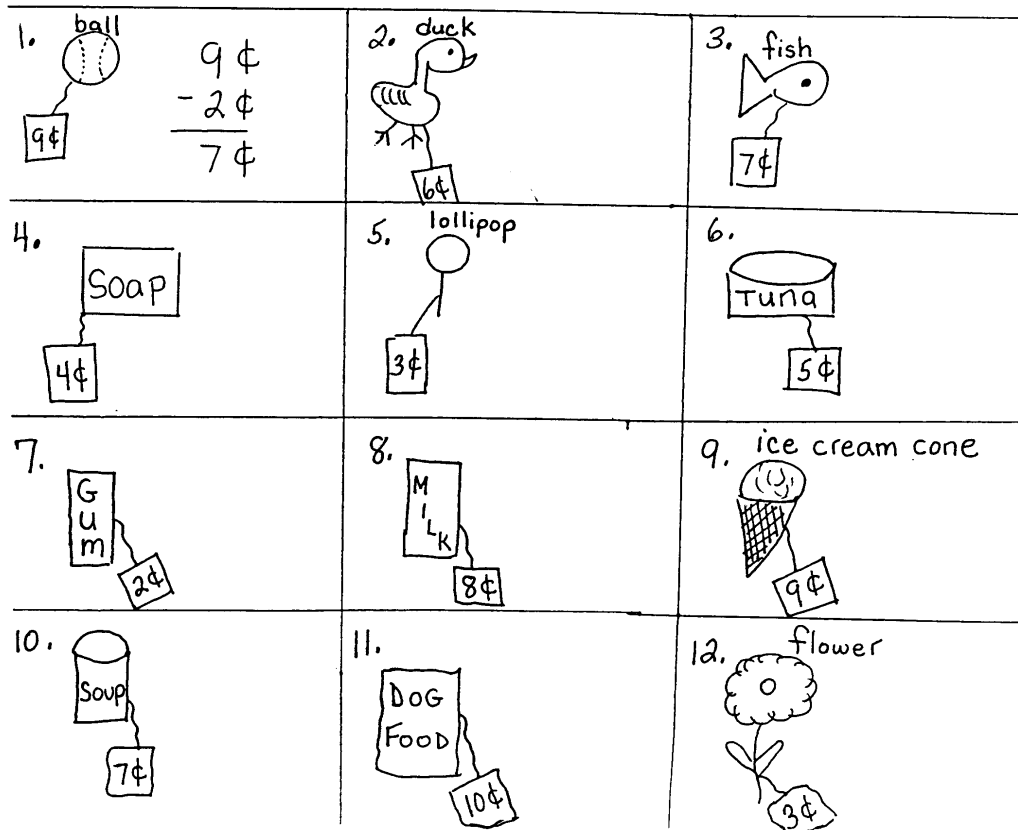 1. ball
9¢
9¢
-2¢
7¢
2. duck
6¢
3. fish
7¢
4. Soap
4¢
5. lollipop
3¢
6. Tuna
5¢
7. Gum
2¢
8. MILK
8¢
9. ice cream cone
9¢
10. Soup
7¢
11. DOG
FOOD
10¢
12. flower
3¢